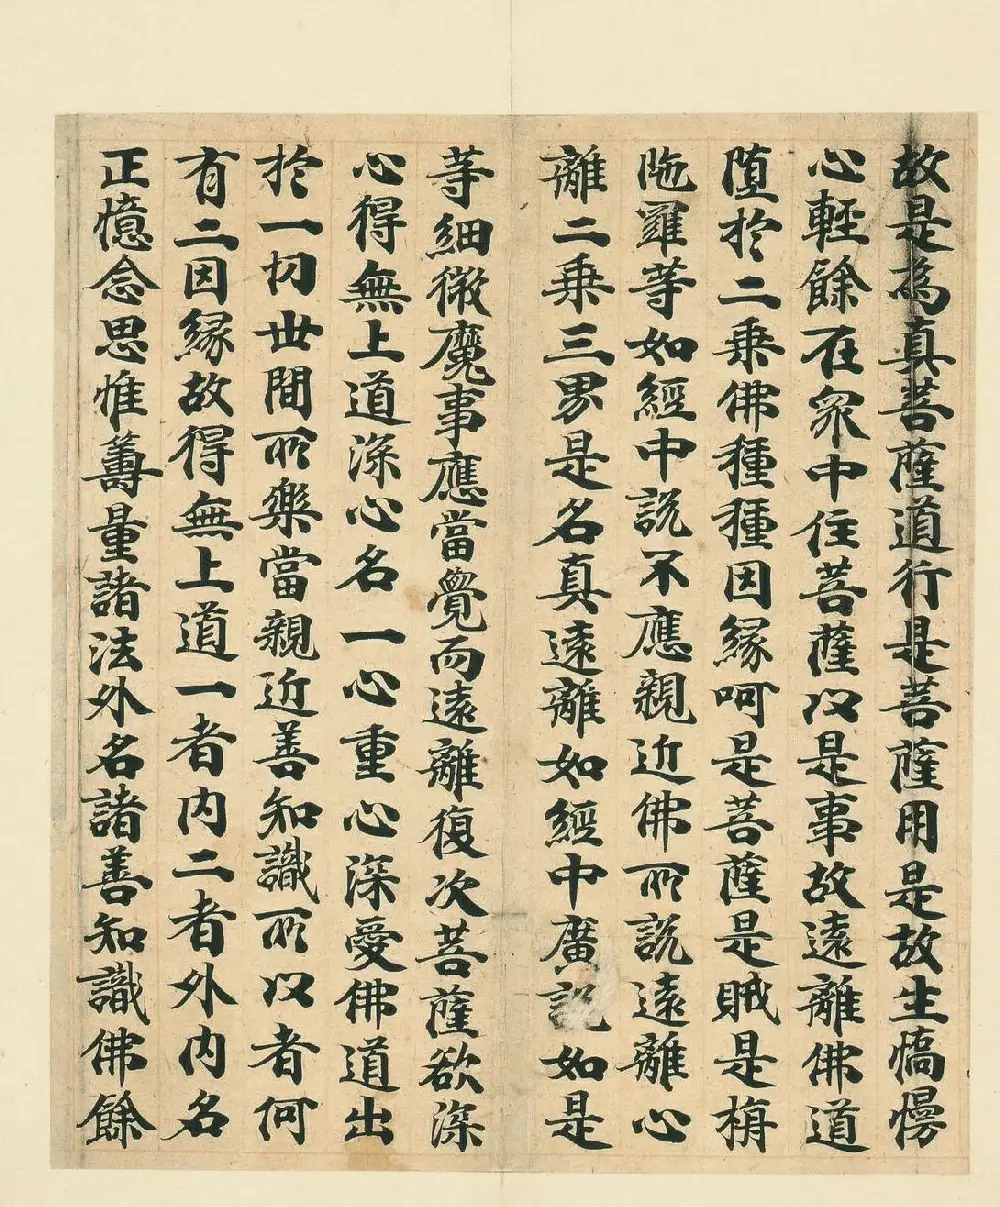 故是為真菩薩道行是菩薩用是故生憍慢
心輕餘在眾中住菩薩以是事故遠離佛道
墮於二乘佛種種因緣呵是菩薩是賊是栴
陁羅等如經中說不應親近佛所說遠離心
離二乘三界是名真遠離如經中廣說如是
等細微魔事應當覺而遠離復次菩薩欲深
心得無上道深心名一心重心深愛佛道出
於一切世間所樂當親近善知識所以者何
有二因緣故得無上道一者內二者外內名
正憶念思惟籌量諸法外名諸善知識佛餘